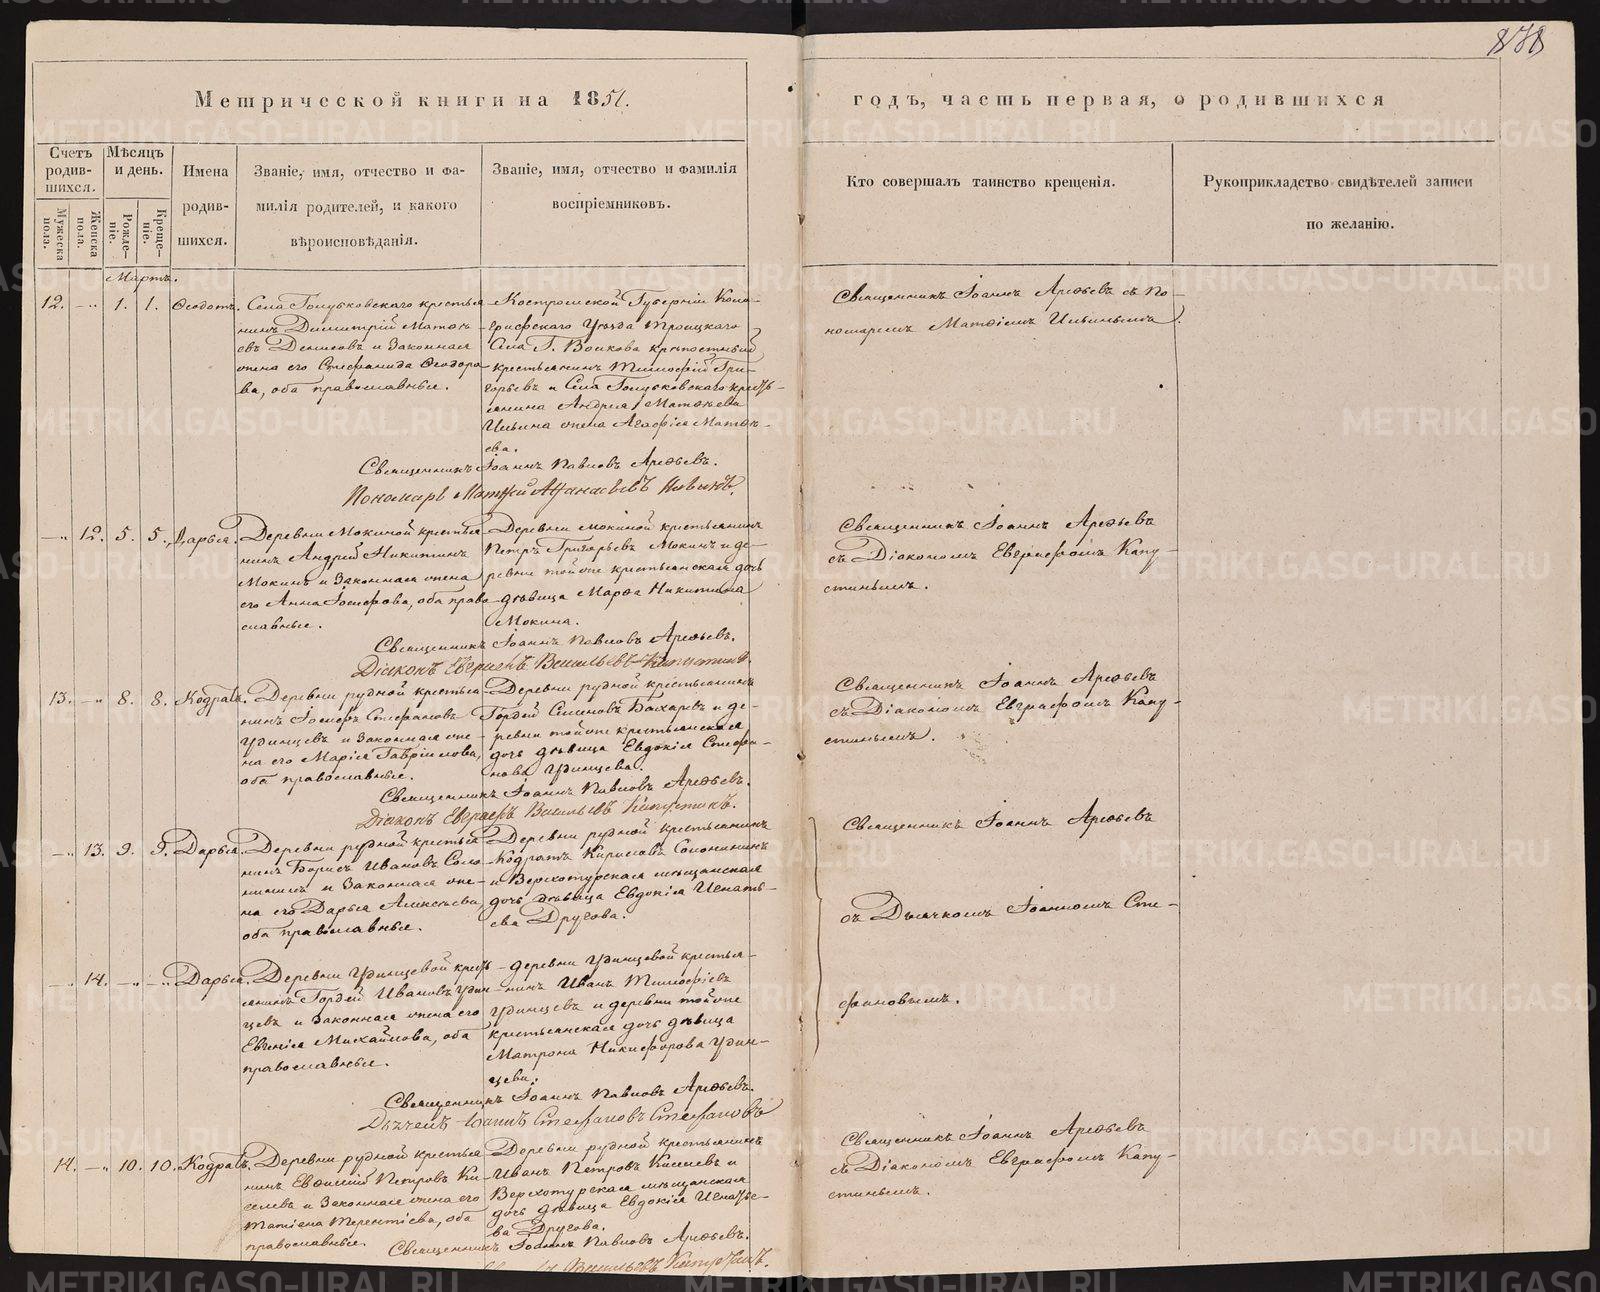 878
Метрической книги на 1851.
годъ, часть первая, о родившихся
Счетъ родив-шихся.
Мѣсяцъ и день.
Имена родив-шихся.
Званіе, имя, отчество и фа-
милія родителей, и какого
вѣроисповѣданія.
Званіе, имя, отчество и фамилія
воспріемниковъ.
Кто совершалъ таинство крещенія.
Рукоприкладство свидѣтелей записи
по желанію.
Мужеска пола.
Женска пола.
Рожде-ніе.
Креще-ніе.
Мартъ.
12. 1. 1. Ѳеодотъ.
Села Голубковскаго крестья
нинъ Димитрій Матѳѣ
евъ Денисовъ и Законная
жена его Стефанида Ѳеодоро
ва, оба православные.
Костромской Губерніи Коло-
грифскаго Уѣзда Троицкаго
Села Г. Волкова крѣпостный
крестьянинъ Тимофій Гри-
горьевъ и Села Голубковскаго кресть-
янина Андрея Матѳѣева
Ильина жена Агафія Матѳѣ-
ева.
Священникъ Іоаннъ Арефьевъ съ По-
номаремъ Матѳіемъ Ильинымъ.
Священникъ Іоаннъ Павловъ Арефьевъ.
Пономарь Матѳій Аѳанасьевъ
12. 5. 5. Дарья.
Деревни Мокиной крестья
нинъ Андрей Никитинъ
Мокинъ и Законная жена
его Анна Іосифова, оба право
славные.
Деревни Мокиной крестьянинъ
Петръ Григорьевъ Мокинъ и де-
ревни той же крестьянская дочь
дѣвица Марѳа Никитина
Мокина.
Священникъ Іоаннъ Арефьевъ
съ Діакономъ Евграфомъ Капу-
стинымъ.
Священникъ Іоаннъ Павловъ Арефьевъ.
Діаконъ Евграфъ Васильевъ Капустинъ.
13. 8. 8. Кодратъ.
Деревни рудной крестья
нинъ Іосифъ Стефановъ
Удинцевъ и Законная же-
на его Марія Гавріилова,
оба православные.
Деревни рудной крестьянинъ
Гордей Семеновъ Бахаревъ и де-
ревни той же крестьянская
дочь дѣвица Евдокія Стефа-
нова Удинцева.
Священникъ Іоаннъ Арефьевъ
съ Діакономъ Евграфомъ Капу-
стинымъ.
Священникъ Іоаннъ Павловъ Арефьевъ.
Діаконъ Евграфъ Васильевъ Капустинъ.
13. 9. 9. Дарья.
Деревни рудной крестья
нинъ Борисъ Ивановъ Соло
нининъ и Законная же-
на его Дарья Алексѣева,
оба православные.
Деревни рудной крестьянинъ
Кодратъ Кириловъ Солонининъ
и Верхотурская мѣщанская
дочь дѣвица Евдокія Игнать-
ева Другова.
Священникъ Іоаннъ Арефьевъ
съ Дьячкомъ Іоанномъ Сте-
фановымъ.
14. Дарья.
Деревни Удинцевой кресть
янинъ Гордей Ивановъ Удин
цевъ и Законная жена его
Евгенія Михайлова, оба
православные.
деревни Удинцевой крестья-
нинъ Иванъ Тимофіевъ
Удинцевъ и деревни той же
крестьянская дочь дѣвица
Матрона Никифорова Удин-
цева.
Священникъ Іоаннъ Павловъ Арефьевъ.
Дьячекъ Іоаннъ Стефановъ Стефановъ
14. 10. 10. Кодратъ.
Деревни рудной крестья
нинъ Евѳимій Петровъ Ки-
селевъ и Законная жена его
Татіана Терентіева, оба
православные.
Деревни рудной крестьянинъ
Иванъ Петровъ Киселевъ и
Верхотурская мѣщанская
дочь дѣвица Евдокія Игнатье-
ва Другова.
Священникъ Іоаннъ Арефьевъ
съ Діакономъ Евграфомъ Капу-
стинымъ.
Священникъ Іоаннъ Павловъ Арефьевъ.
Васильевъ Капустинъ.
METRIKI.GASO-URAL.RU